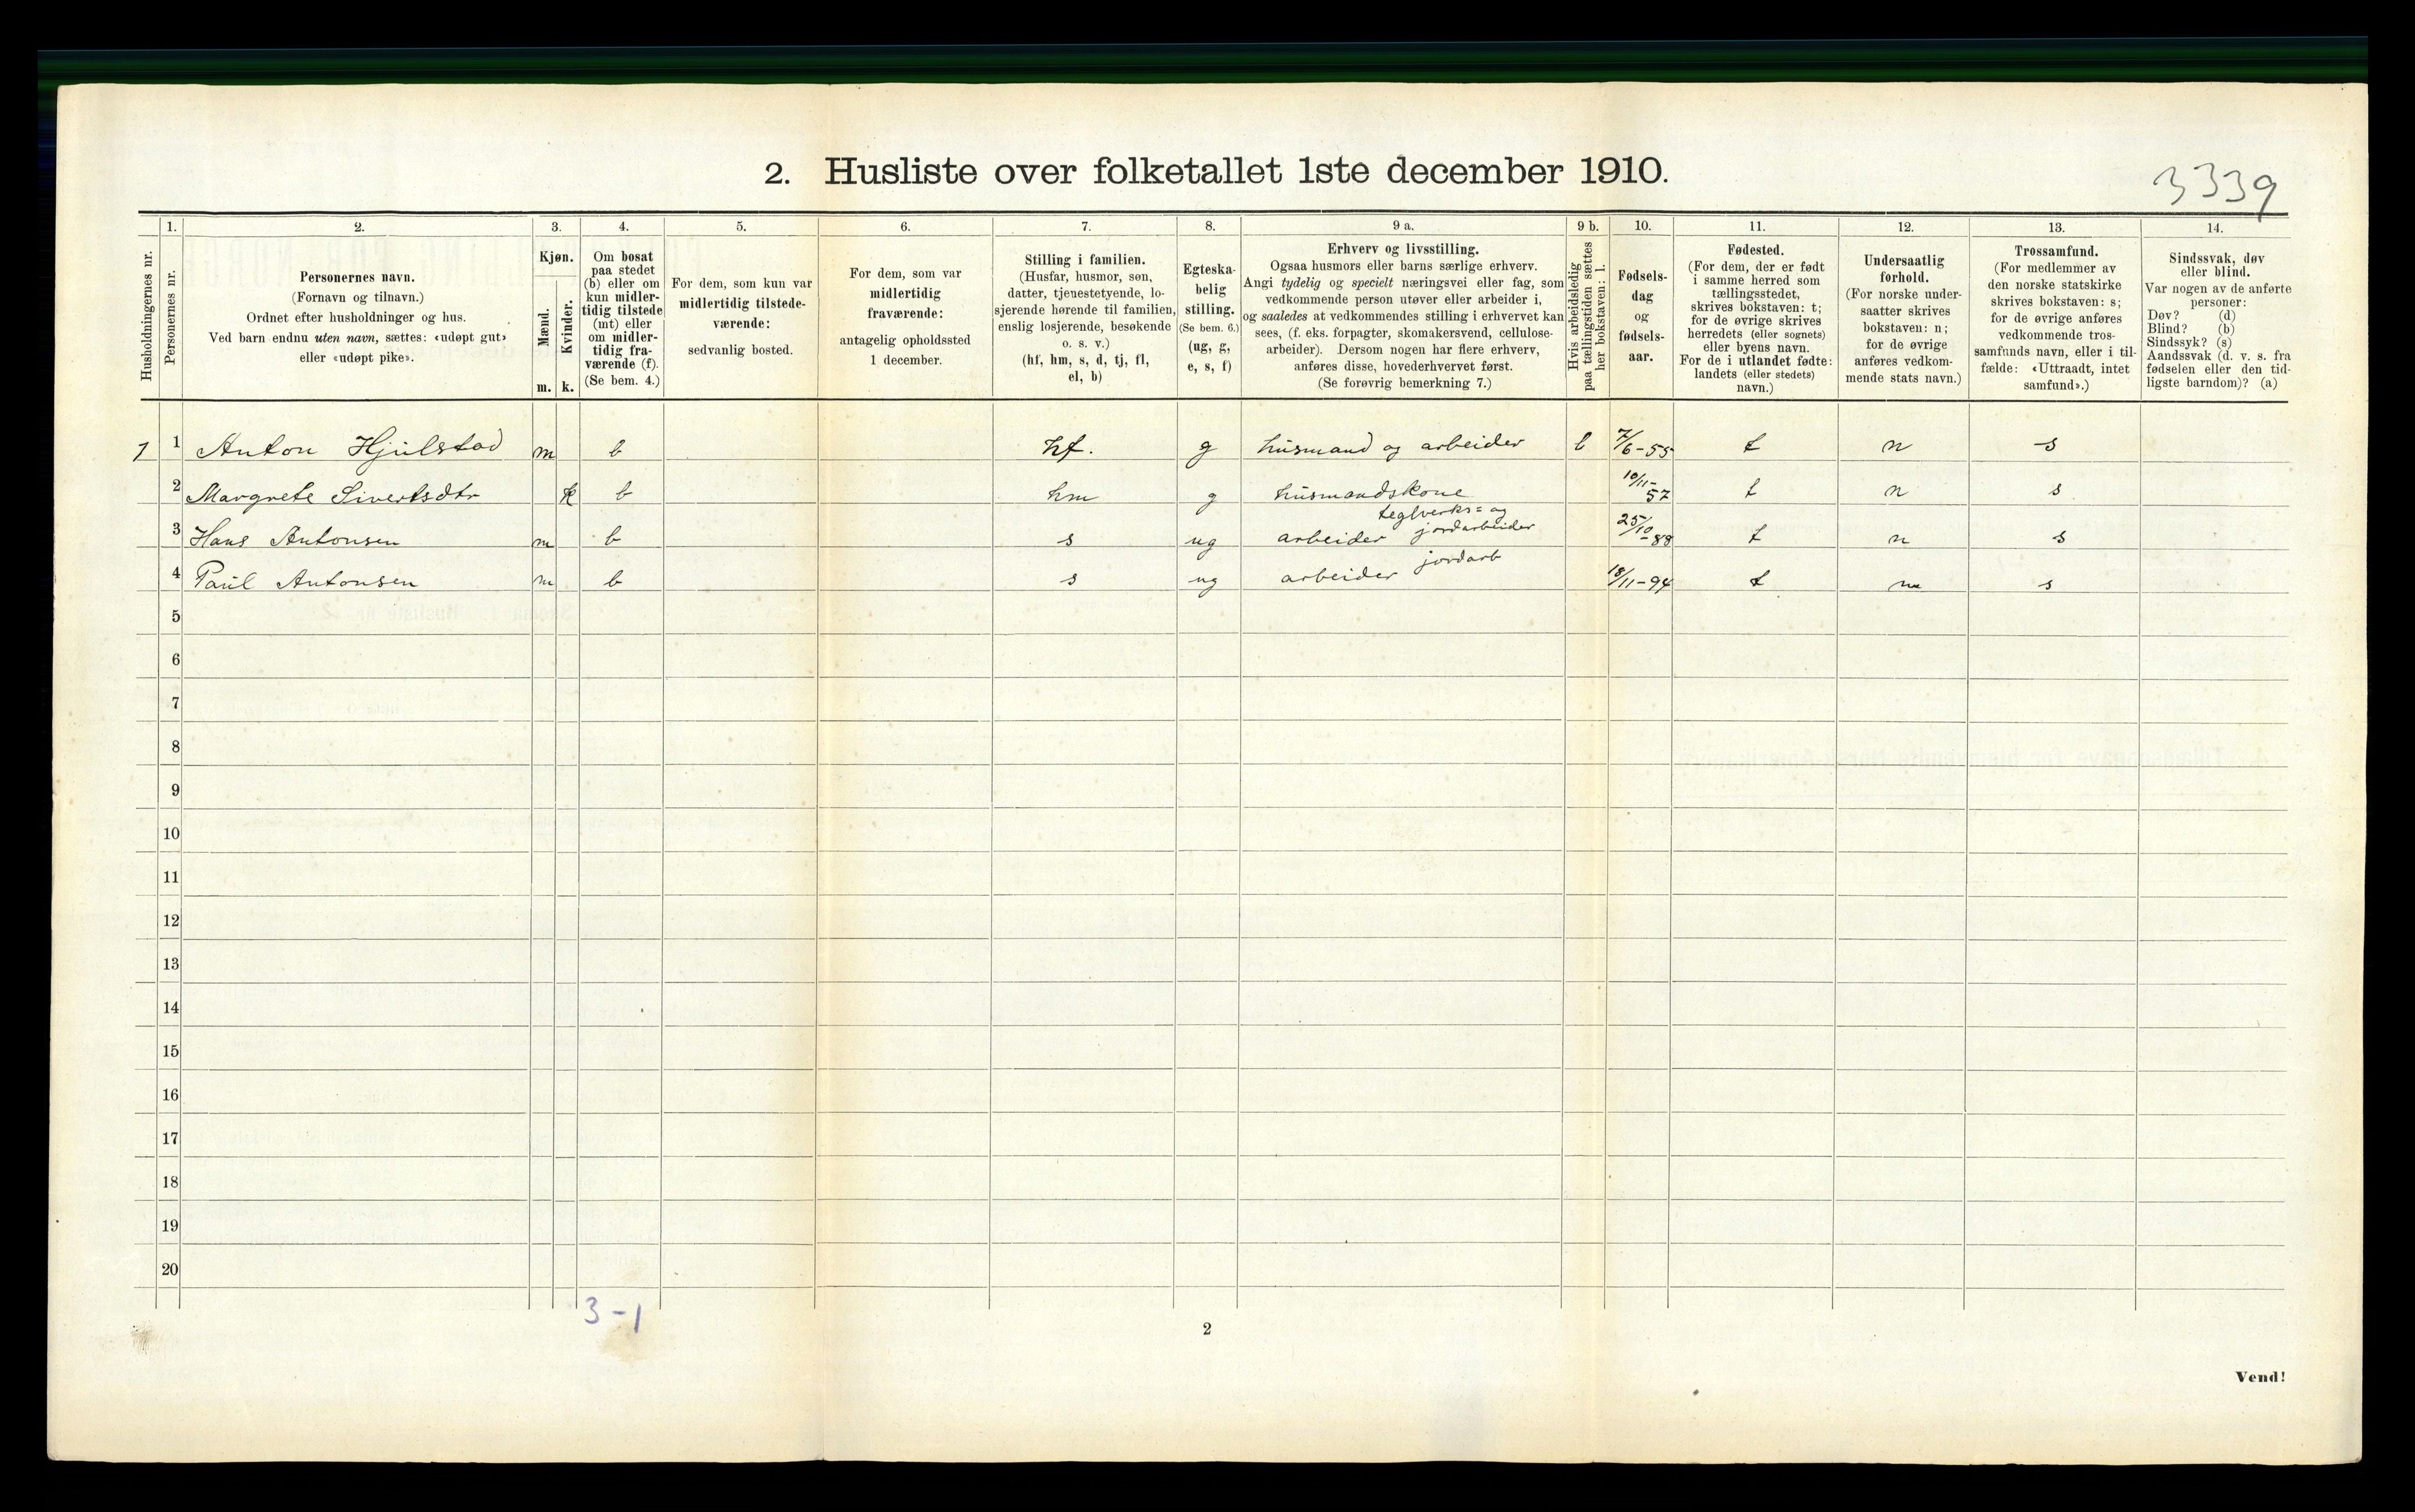 2. Husliste over folketallet 1ste december 1910.
3339
Husholdningernes nr.
1.
Personernes nr.
2.
Personernes navn.
(Fornavn og tilnavn.)
Ordnet efter husholdninger og hus.
Ved barn endnu uten navn, sættes: «udøpt gut»
eller «udøpt pike».
3.
Kjøn.
Mænd.
Kvinder.
m. k.
4.
Om bosat
paa stedet
(b) eller om
kun midler-
tidig tilstede
(mt) eller
om midler-
tidig fra-
værende (f).
(Se bem. 4.)
5.
For dem, som kun var
midlertidig tilstede-
værende:
sedvanlig bosted.
6.
For dem, som var
midlertidig
fraværende:
antagelig opholdssted
1 december.
7.
Stilling i familien.
(Husfar, husmor, søn,
datter, tjenestetyende, lo-
sjerende hørende til familien,
enslig losjerende, besøkende
o. s. v.)
(hf, hm, s, d, tj, fl,
el, b)
8.
Egteska-
belig
stilling.
(Se bem. 6.)
(ug, g,
e, s, f)
9 a.
Erhverv og livsstilling.
Ogsaa husmors eller barns særlige erhverv.
Angi tydelig og specielt næringsvei eller fag, som
vedkommende person utøver eller arbeider i,
og saaledes at vedkommendes stilling i erhvervet kan
sees, (f. eks. forpagter, skomakersvend, cellulose-
arbeider). Dersom nogen har flere erhverv,
anføres disse, hovederhvervet først.
(Se forøvrig bemerkning 7.)
9 b.
Hvis arbeidsledig
paa tællingstiden sættes
her bokstaven: l.
10.
Fødsels-
dag
og
fødsels-
aar.
11.
Fødested.
(For dem, der er født
i samme herred som
tællingsstedet,
skrives bokstaven: t;
for de øvrige skrives
herredets (eller sognets)
eller byens navn.
For de i utlandet fødte:
landets (eller stedets)
navn.)
12.
Undersaatlig
forhold.
(For norske under-
saatter skrives
bokstaven: n;
for de øvrige
anføres vedkom-
mende stats navn.)
13.
Trossamfund.
(For medlemmer av
den norske statskirke
skrives bokstaven: s;
for de øvrige anføres
vedkommende tros-
samfunds navn, eller i til-
fælde: «Uttraadt, intet
samfund».)
14.
Sindssvak, døv
eller blind.
Var nogen av de anførte
personer:
Døv? (d)
Blind? (b)
Sindssyk? (s)
Aandssvak (d. v. s. fra
fødselen eller den tid-
ligste barndom)? (a)
1 1 Anton Hjulstad m b hf. g husmand og arbeider l 7/6-55 t n s
2 Margrete Sivertsdtr k b hm g husmandskone 10/11-57 t n s
teglverks= og
3 Hans Antonsen m b s ug arbeider jordarbeider 25/10-88 t n s
4 Paul Antonsen m b s ug arbeider jordarb 18/11-94 t n s
5
6
7
8
9
10
11
12
13
14
15
16
17
18
19
20
3-1
2
Vend!